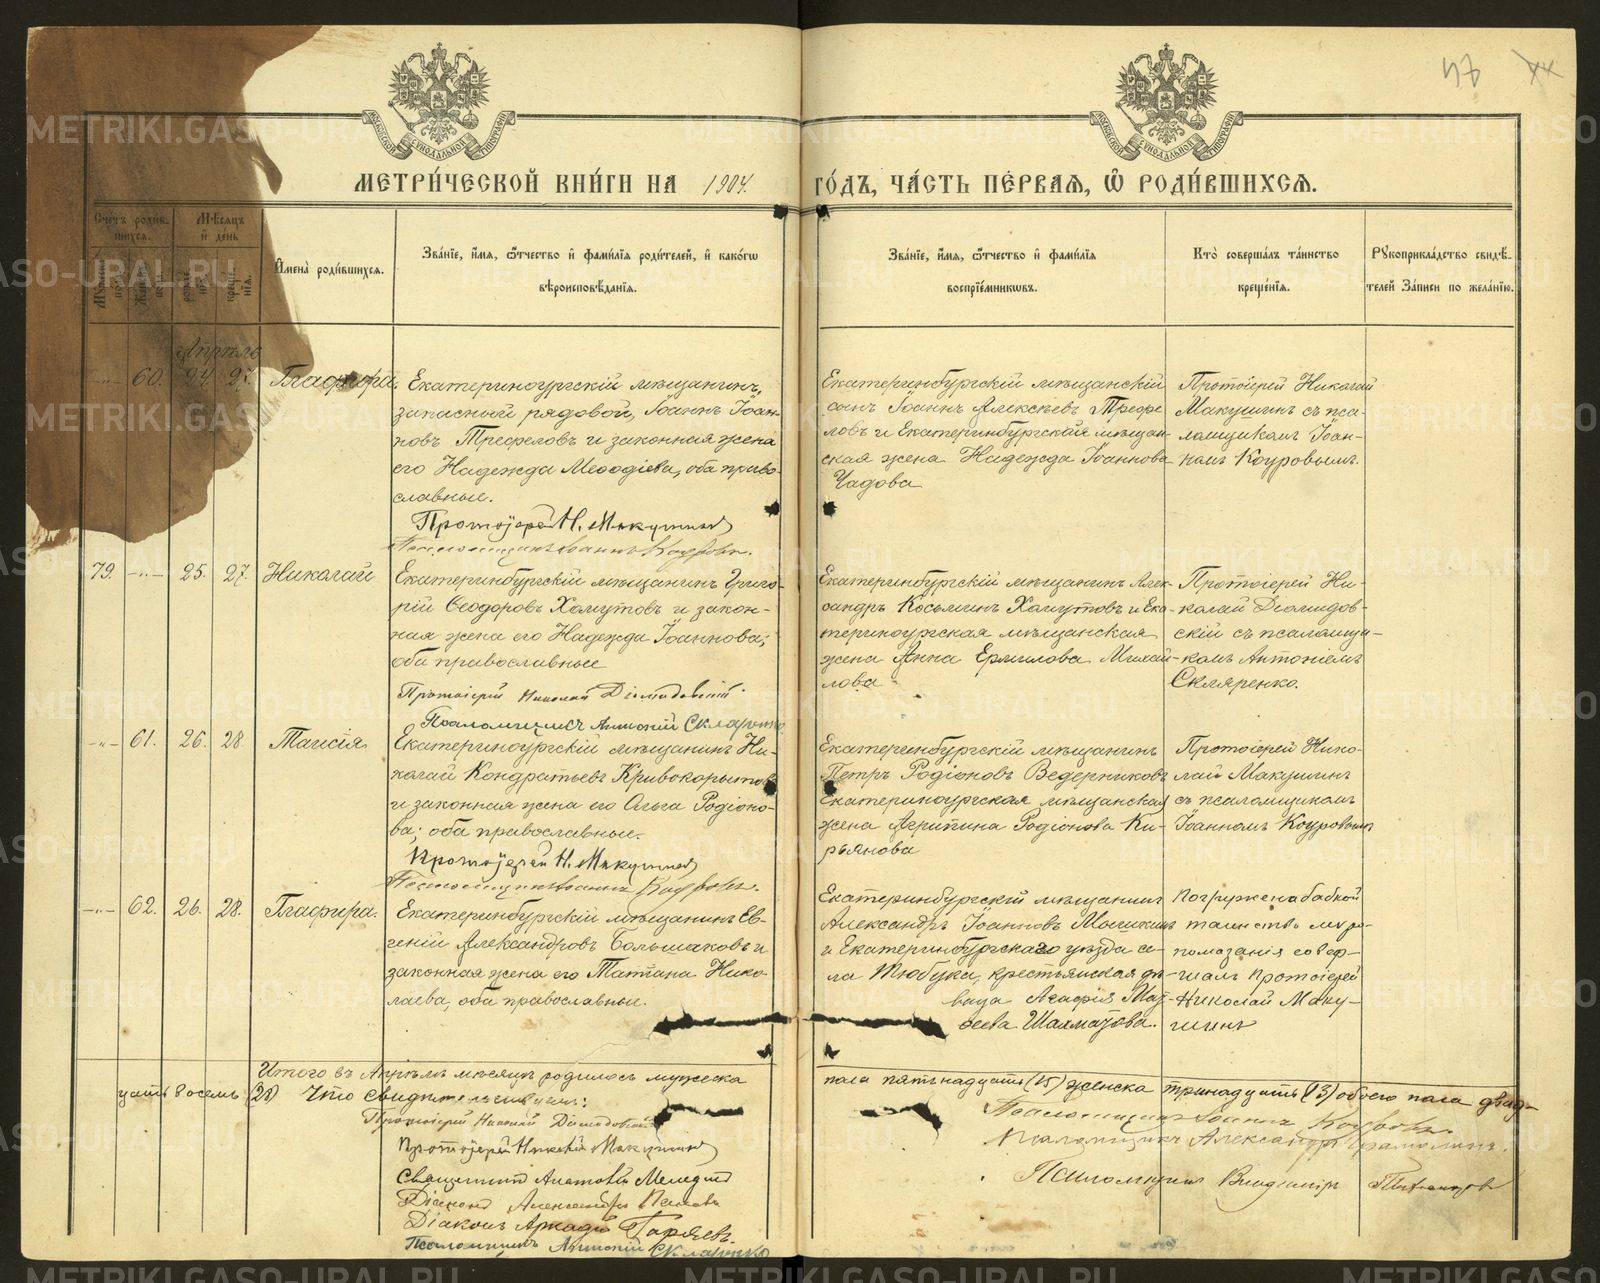 47
МЕТРИ́ЧЕСКОЙ КНИ́ГИ НА 1904. ГО́ДЪ, ЧА́СТЬ ПЕ́РВАЯ, Ѿ РОДИ́ВШИХСЯ.
Сче́тъ роди́в-
шихся.
Мѣ́сяцъ
и҆ де́нь
И҆мена̀ роди́вшихся.
Зва́нїе, и҆́мя, ѻ҆́тчество и҆ фами́лїя роди́телей, и҆ како́гѡ
вѣроисповѣ́данїя.
Зва́нїе, и҆́мя, ѻ҆́тчество и҆ фами́лїя
воспрїе́мникѡвъ.
Кто̀ соверша́лъ та́инство
креще́нїя.
Рꙋкоприкла́дство свидѣ́-
телей За́писи по жела́нїю.
Апрѣль
-"- 60. 24. 27. Глафира.
Екатеринбургскій мѣщанинъ,
запасный рядовой, Іоаннъ Іоан-
новъ Трефеловъ и законная жена
его Надежда Меѳодіева, оба право-
славные.
Протоіерей Н. Макушинъ
Псаломщикъ Іоаннъ Коуровъ.
Екатеринбургскій мѣщанскій
сынъ Іоаннъ Алексѣевъ Трефе
ловъ и Екатеринбургская мѣщан-
ская жена Надежда Іоаннова
Чадова
Протоіерей Николай
Макушинъ съ пса-
ломщикомъ Іоан-
номъ Коуровымъ.
79. -"- 25. 27. Николай
Екатеринбургскій мѣщанинъ Григо-
рій Ѳеодоровъ Хомутовъ и закон-
ная жена его Надежда Іоаннова;
оба православные
Протоіерей Николай Діомидовскій.
Псаломщикъ Антоній Скляренко.
Екатеринбургскій мѣщанинъ Алек-
сандръ Косьминъ Хомутовъ и Ека-
теринбургская мѣщанская
жена Анна Ермилова Михай-
лова
Протоіерей Ни-
колай Діомидов-
скій съ псаломщи-
комъ Антоніемъ
Скляренко.
-"- 61. 26. 28. Таисія
Екатеринбургскій мѣщанинъ Ни-
колай Кондратьевъ Кривокорытовъ
и законная жена его Ольга Родіоно-
ва; оба православные.
Протоіерей Н. Макушинъ
Псаломщикъ Іоаннъ Коуровъ.
Екатеринбургскій мѣщанинъ
Петръ Родіоновъ Ведерниковъ
Екатеринбургская мѣщанская
жена Агрипина Родіонова Ки-
рьянова
Протоіерей Нико-
лай Макушинъ
съ псаломщикомъ
Іоанномъ Коуровымъ
-"- 62. 26. 28. Глафира.
Екатеринбургскій мѣщанинъ Ев-
геній Александровъ Большаковъ и
законная жена его Татіана Нико-
лаева, оба православные.
Екатеринбургскій мѣщанинъ
Александръ Іоанновъ
и Екатеринбургскаго уѣзда се-
ла Тюбука, крестьянская дѣ-
вица Агафія Мат-
ѳеева Шахматова.
Погружена бабкой
таинство мѵро-
помазанія совер-
шалъ протоіерей
Николай Маку-
шинъ
Итого въ Апрѣлѣ мѣсяцѣ родилось мужеска пола пятнадцать (15) женска тринадцать (13) обоего пола двад-
цать восемь (28) Что свидѣтельствуемъ:
Протоіерей Николай Діомидовскій
Протоіерей Николай Макушинъ
Священникъ
Діаконъ Александръ
Діаконъ Аркадій Гаряевъ.
Псаломщикъ Антоній Скляренко
Псаломщикъ Іоаннъ Коуровъ.
Псаломщикъ Александръ
Псаломщикъ Владиміръ
METRIKI.GASO-URAL.RU